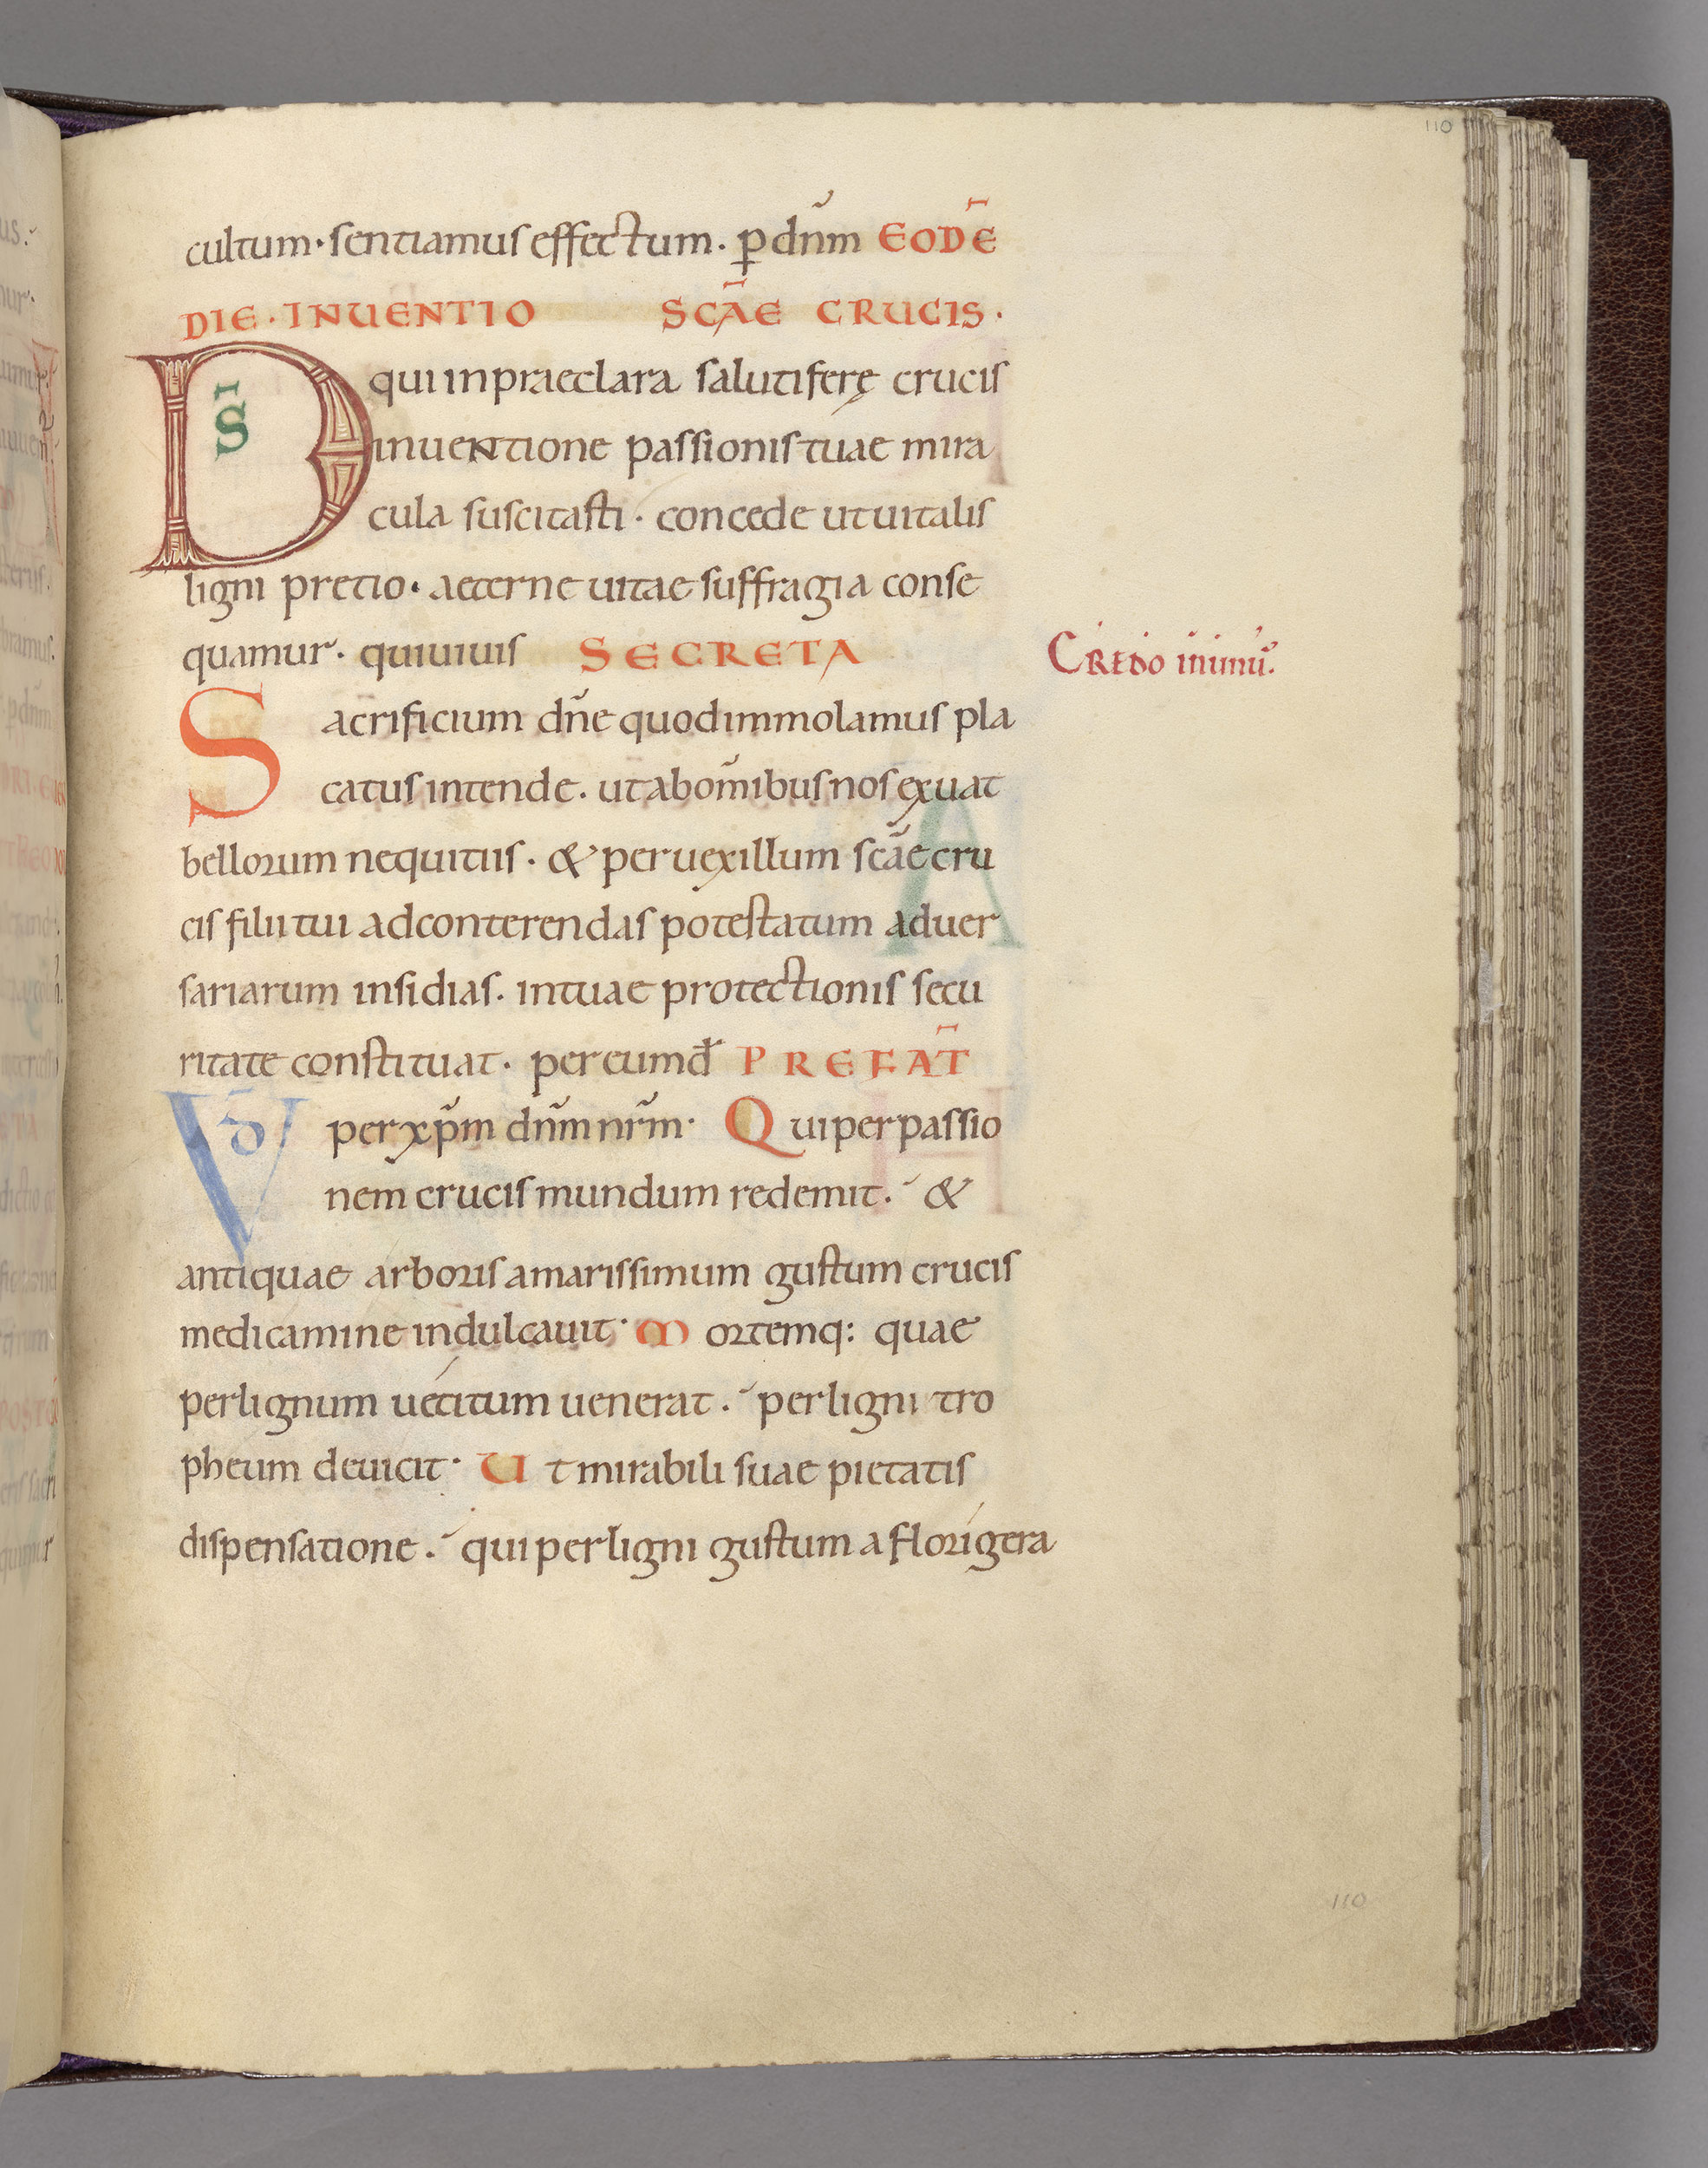 110
cultum · sentiamus effectum . p̱ dn̄m EODĒ
DIE · INUENTIO SCĀE CRUCIS .
DS̄ qui in praeclara salutiferę crucis
inuentione passionis tuae mira
cula suscitasti · concede ut uitalis
ligni pretio · aeterne uitae suffragia conse
quamur · qui uiuis SECRETA
CREDO in unū.
Sacrificium dn̄e quod immolamus pla
catus intende . ut ab om̄ibus nos exuat
bellorum nequitiis . & per uexillum scāe cru
cis filii tui ad conterendas potestatum aduer
sariarum insidias . in tuae protectionis secu
ritate constituat . per eumđ PREFAT̄
VD̄ per xp̄m dn̄m nr̄m · Qui per passio
nem crucis mundum redemit . &
antiquae arboris amarissimum gustum crucis
medicamine indulcauit · Mortemq: quae
per lignum uetitum uenerat . per ligni tro
pheum deuicit · Ut mirabili suae pietatis
dispensatione . qui per ligni gustum a florigera
110